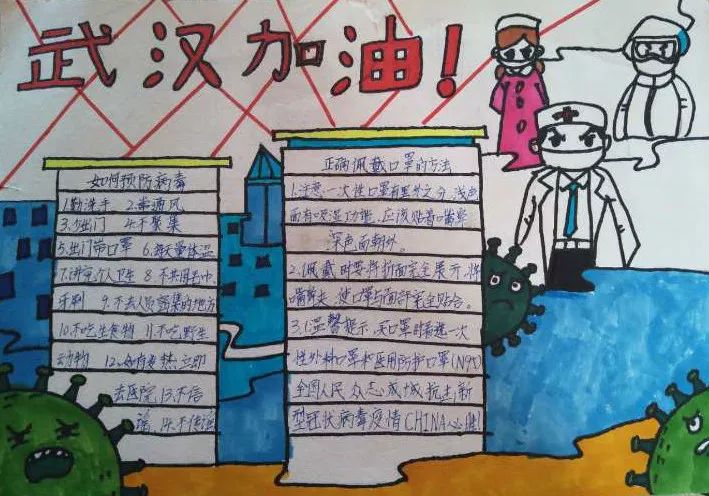 武汉加油!
如何预防病毒
1.勤洗手 2.常通风
3.少出门 4.不聚集
5.出门带口罩 6.每天量体温
7.讲究个人卫生 8.不共用毛巾
牙刷 9.不去人员密集的地方
10.不吃生食物 11.不吃野生
动物 12.如有发热立即
去医院 13.不信
谣 14.不传谣
正确佩戴口罩的方法
1.注意一次性口罩有里外之分,浅色
面有吸湿功能,应该贴着嘴鼻
深色面朝外。
2.佩戴时要将折面完全展开,将
嘴鼻 使口罩与面部完全贴合。
3.(温馨提示,买口罩时首选一次
性外科口罩和医用防护口罩(N95)
全国人民众志成城抗击新
型冠状病毒疫情CHINA必胜!